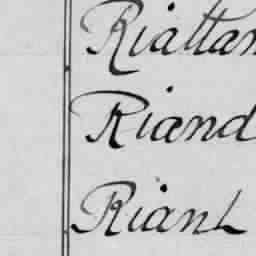 Riattan
Riand
Riant